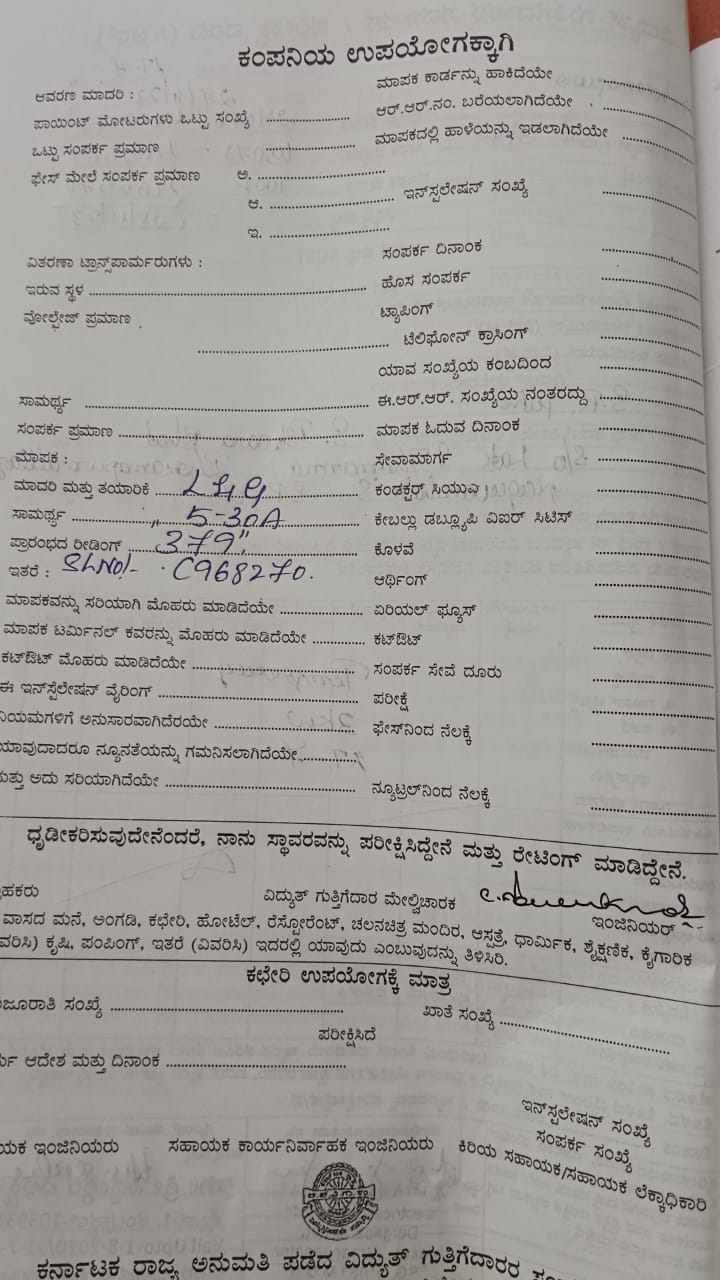 ಕಂಪನಿಯ ಉಪಯೋಗಕ್ಕಾಗಿ
ಆವರಣ ಮಾದರಿ : ಮಾಪಕ ಕಾರ್ಡನ್ನು ಹಾಕಿದೆಯೇ ....................
ಪಾಯಿಂಟ್ ಮೋಟರುಗಳು ಒಟ್ಟು ಸಂಖ್ಯೆ .................... ಆರ್.ಆರ್.ನಂ. ಬರೆಯಲಾಗಿದೆಯೇ ....................
ಒಟ್ಟು ಸಂಪರ್ಕ ಪ್ರಮಾಣ .................... ಮಾಪಕದಲ್ಲಿ ಹಾಳೆಯನ್ನು ಇಡಲಾಗಿದೆಯೇ ....................
ಫೇಸ್ ಮೇಲೆ ಸಂಪರ್ಕ ಪ್ರಮಾಣ ಅ. ....................
ಆ. .................... ಇನ್‌ಸ್ಪಲೇಷನ್ ಸಂಖ್ಯೆ ....................
ಇ. ....................
ವಿತರಣಾ ಟ್ರಾನ್ಸ್‌ಪಾರ್ಮರುಗಳು : ಸಂಪರ್ಕ ದಿನಾಂಕ ....................
ಇರುವ ಸ್ಥಳ .................... ಹೊಸ ಸಂಪರ್ಕ ....................
ವೋಲ್ಟೇಜ್ ಪ್ರಮಾಣ ಟ್ಯಾಪಿಂಗ್ ....................
.................... ಟೆಲಿಫೋನ್ ಕ್ರಾಸಿಂಗ್ ....................
ಯಾವ ಸಂಖ್ಯೆಯ ಕಂಬದಿಂದ ....................
ಸಾಮರ್ಥ್ಯ .................... ಈ.ಆರ್.ಆರ್. ಸಂಖ್ಯೆಯ ನಂತರದ್ದು ....................
ಸಂಪರ್ಕ ಪ್ರಮಾಣ .................... ಮಾಪಕ ಓದುವ ದಿನಾಂಕ ....................
ಮಾಪಕ : ಸೇವಾಮಾರ್ಗ ....................
ಮಾದರಿ ಮತ್ತು ತಯಾರಿಕೆ L&G ಕಂಡಕ್ಟರ್ ಸಿಯುವಿ ....................
ಸಾಮರ್ಥ್ಯ 5-30A ಕೇಬಲ್ಲು ಡಬ್ಲ್ಯೂಪಿ ವಿಐರ್ ಸಿಟಿಸ್ ....................
ಪ್ರಾರಂಭದ ರೀಡಿಂಗ್ 379" ಕೊಳವೆ ....................
ಇತರೆ : SLNo/- C968270. ಆರ್ಥಿಂಗ್ ....................
ಮಾಪಕವನ್ನು ಸರಿಯಾಗಿ ಮೊಹರು ಮಾಡಿದೆಯೇ .................... ಏರಿಯಲ್ ಫ್ಯೂಸ್ ....................
ಮಾಪಕ ಟರ್ಮಿನಲ್ ಕವರನ್ನು ಮೊಹರು ಮಾಡಿದೆಯೇ .................... ಕಟ್‌ಔಟ್ ....................
ಕಟ್‌ಔಟ್ ಮೊಹರು ಮಾಡಿದೆಯೇ .................... ಸಂಪರ್ಕ ಸೇವೆ ದೂರು ....................
ಈ ಇನ್‌ಸ್ಪೆಲೇಷನ್ ವೈರಿಂಗ್ .................... ಪರೀಕ್ಷೆ ....................
ನಿಯಮಗಳಿಗೆ ಅನುಸಾರವಾಗಿದೆರಯೇ .................... ಫೇಸ್‌ನಿಂದ ನೆಲಕ್ಕೆ ....................
ಯಾವುದಾದರೂ ನ್ಯೂನತೆಯನ್ನು ಗಮನಿಸಲಾಗಿದೆಯೇ ....................
ಮತ್ತು ಅದು ಸರಿಯಾಗಿದೆಯೇ .................... ನ್ಯೂಟ್ರಲ್‌ನಿಂದ ನೆಲಕ್ಕೆ ....................
ಧೃಡೀಕರಿಸುವುದೇನೆಂದರೆ, ನಾನು ಸ್ಥಾವರವನ್ನು ಪರೀಕ್ಷಿಸಿದ್ದೇನೆ ಮತ್ತು ರೇಟಿಂಗ್ ಮಾಡಿದ್ದೇನೆ.
ಹಕರು ವಿದ್ಯುತ್ ಗುತ್ತಿಗೆದಾರ ಮೇಲ್ವಿಚಾರಕ ಇಂಜಿನಿಯರ್
ವಾಸದ ಮನೆ, ಅಂಗಡಿ, ಕಛೇರಿ, ಹೋಟೆಲ್, ರೆಸ್ಟೋರೆಂಟ್, ಚಲನಚಿತ್ರ ಮಂದಿರ, ಆಸ್ಪತ್ರೆ, ಧಾರ್ಮಿಕ, ಶೈಕ್ಷಣಿಕ, ಕೈಗಾರಿಕ
ವರಿಸಿ) ಕೃಷಿ, ಪಂಪಿಂಗ್, ಇತರೆ (ವಿವರಿಸಿ) ಇದರಲ್ಲಿ ಯಾವುದು ಎಂಬುವುದನ್ನು ತಿಳಿಸಿರಿ.
ಕಛೇರಿ ಉಪಯೋಗಕ್ಕೆ ಮಾತ್ರ
ಜೂರಾತಿ ಸಂಖ್ಯೆ .................... ಖಾತೆ ಸಂಖ್ಯೆ ....................
ಪರೀಕ್ಷಿಸಿದೆ
ಆದೇಶ ಮತ್ತು ದಿನಾಂಕ ....................
ಇನ್‌ಸ್ಪಲೇಷನ್ ಸಂಖ್ಯೆ
ಸಂಪರ್ಕ ಸಂಖ್ಯೆ
ಯಕ ಇಂಜಿನಿಯರು ಸಹಾಯಕ ಕಾರ್ಯನಿರ್ವಾಹಕ ಇಂಜಿನಿಯರು ಕಿರಿಯ ಸಹಾಯಕ/ಸಹಾಯಕ ಲೆಕ್ಕಾಧಿಕಾರಿ
ಕರ್ನಾಟಕ ರಾಜ್ಯ ಅನುಮತಿ ಪಡೆದ ವಿದ್ಯುತ್ ಗುತ್ತಿಗೆದಾರರ